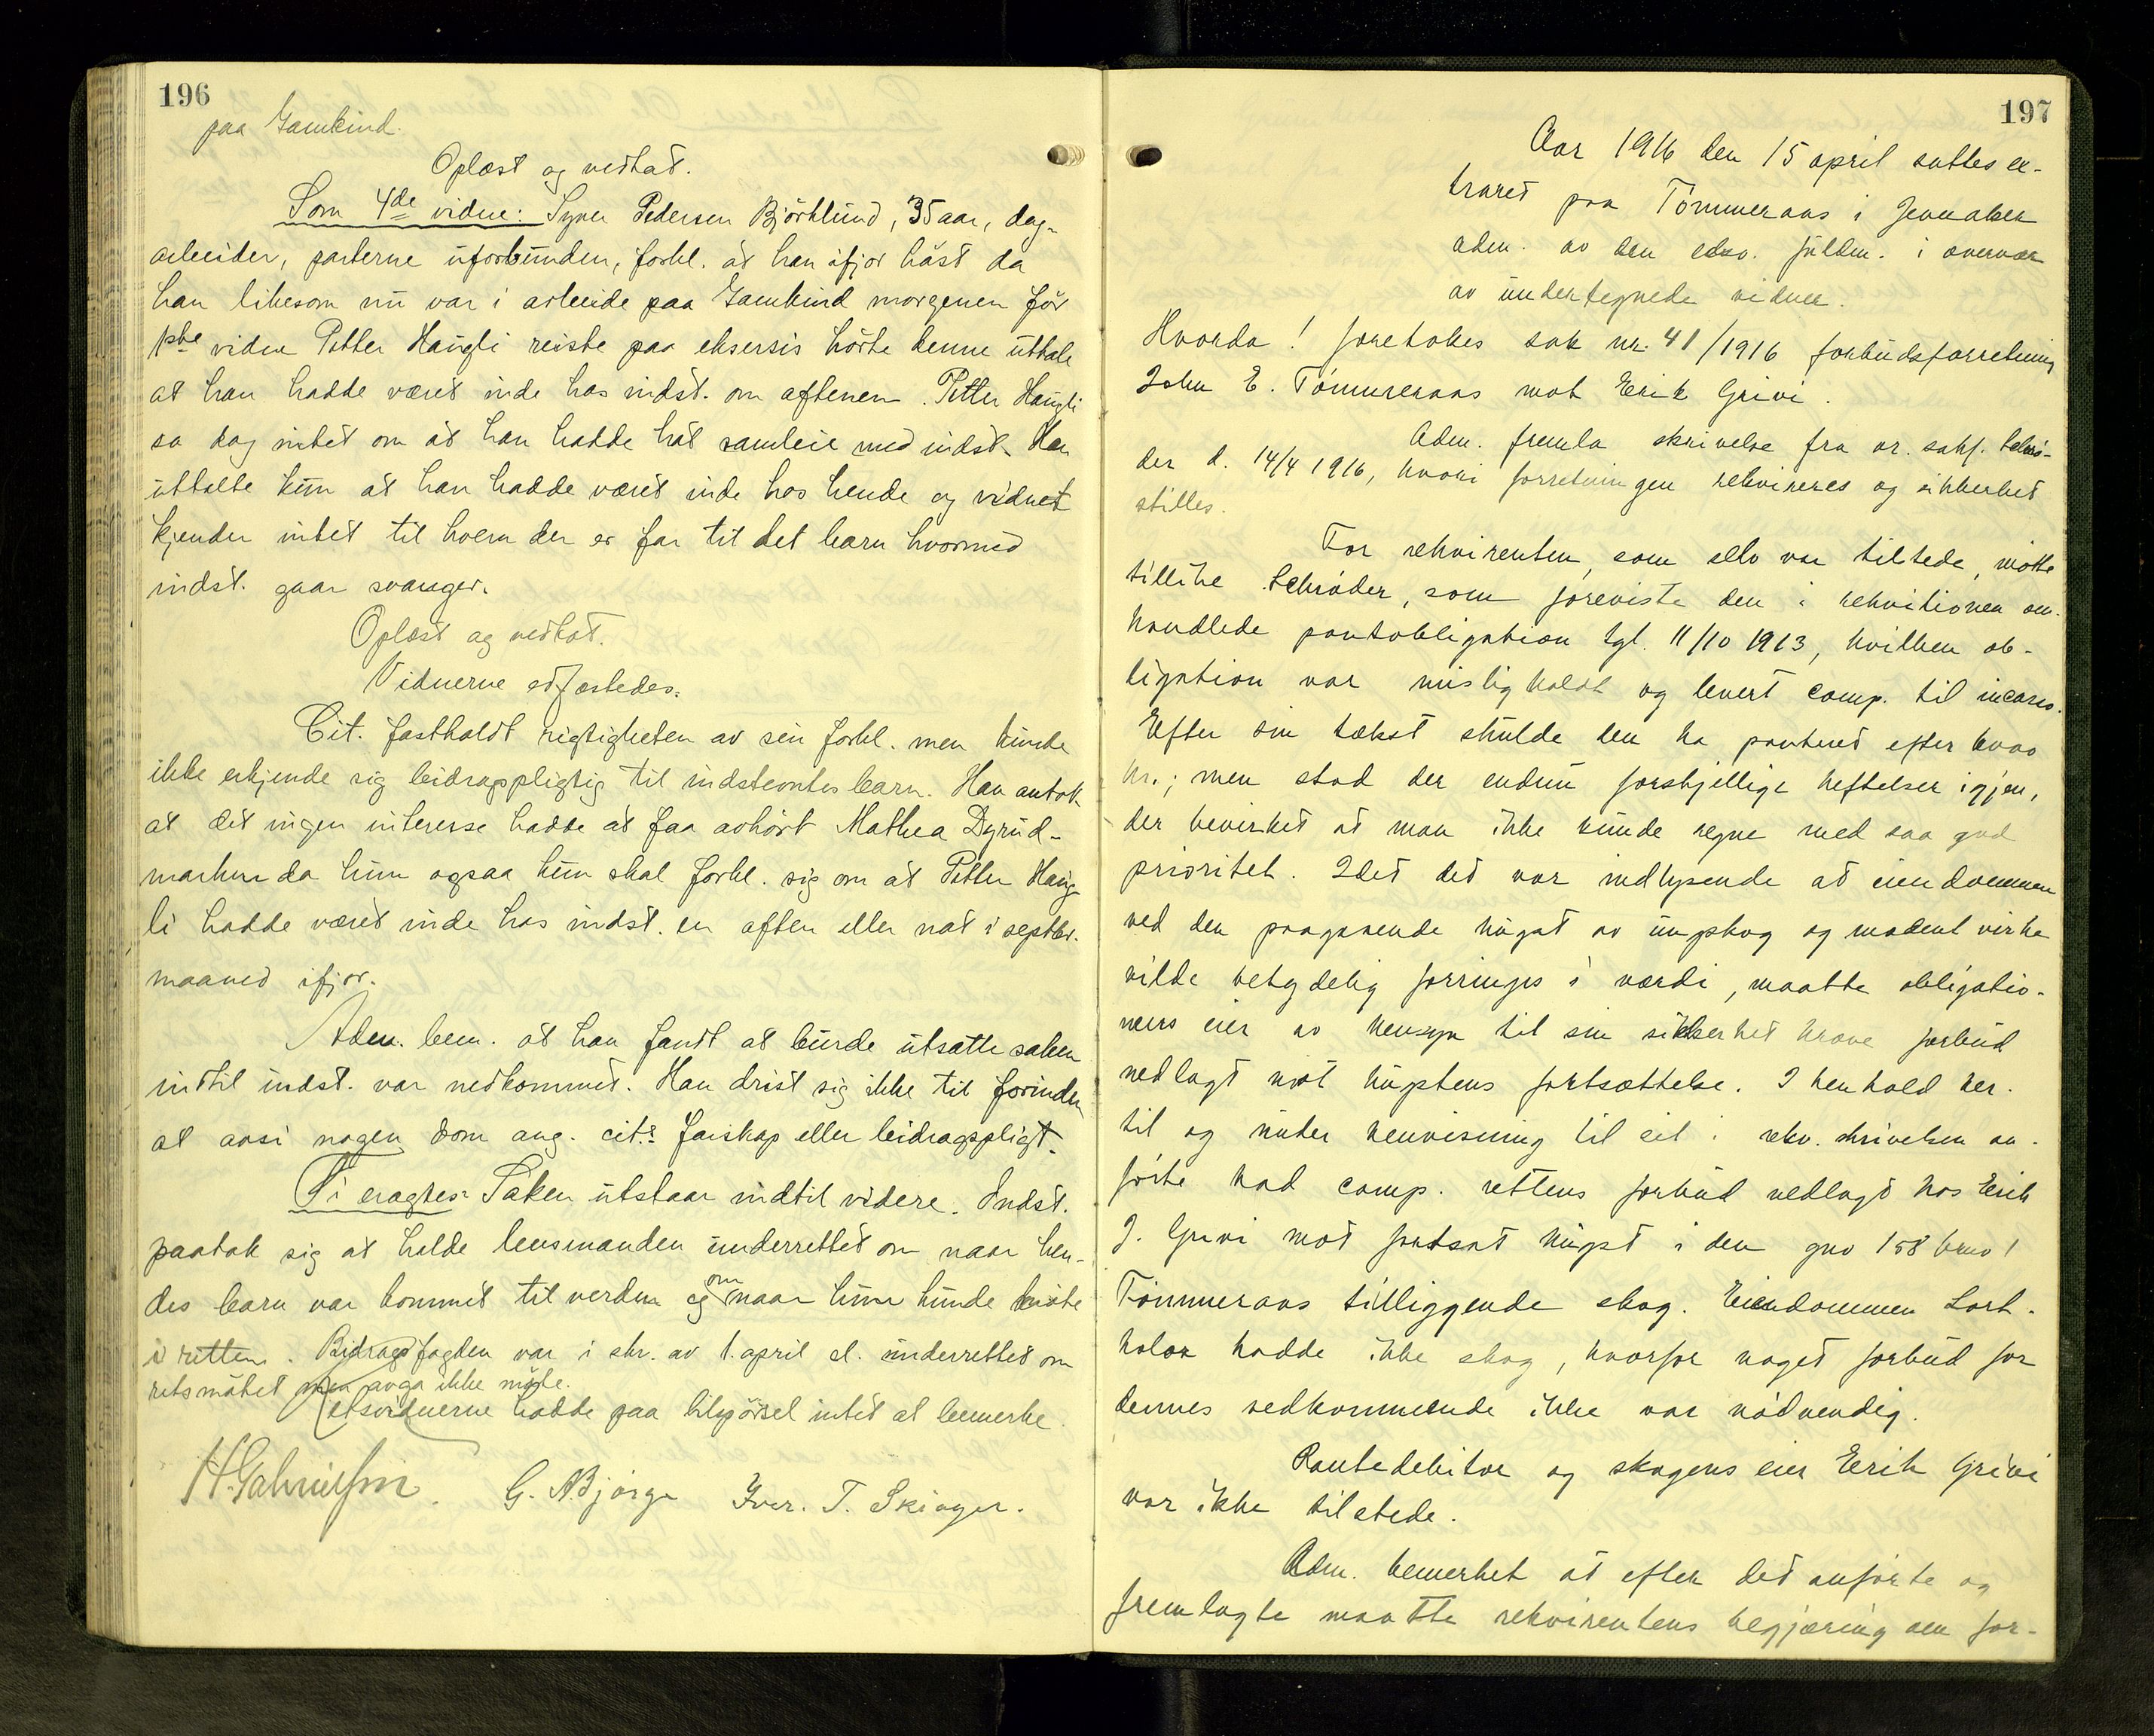 196
paa Gamkind.
Oplæst og vedtat.
Som 4de vidne: Syver Pedersen Björklund, 35 aar, dag-
arbeider, parterne uforbunden, forkl. at han ifjor höst da
han likesom nu var i arbeide paa Gamkind morgenen för
1ste vidne Petter Haugli reiste paa eksersis hörte denne uttale
at han hadde været inde hos indst. om aftenen. Petter Haugli
sa dog intet om at han hadde hat samleie med indst. Han
uttalte kun at han hadde været inde hos hende og vidnet
kjender intet til hvem der er far til det barn hvormed
indst. gaar svanger.
Oplæst og vedtat.
Vidnerne edfæstedes.
Cit. fastholdt rigtigheten av sin forkl. men kunde
ikke erkjende sig bidragspligtig til indstevntes barn. Han antok
at det ingen interesse hadde at faa avhört Mathea Dyrud-
marken da hun ogsaa kun skal forkl. sig om at Petter Haug-
li hadde været inde hos indst. en aften eller nat i septbr.
maaned ifjor.
Adm. bem. at han fandt at burde utsætte saken
indtil indst. var nedkommet. Han drist sig ikke til forinden
at avsi nogen dom ang. cit.s farskap eller bidragspligt.
Ti eragtes: Saken utstaar indtil videre. Indst.
paatok sig at holde lensmanden underrettet om naar hen-
des barn var kommet til verden og om naar hun kunde möte
i retten. Bidragsfogden var i skr. av 1. april d. underrettet om
retsmötet men avga ikke möte.
Retsvidnerne hadde paa tilspörsel intet at bemerke.
H. Gabrielsen. G. A. Bjørge Iver. T. Skinger.
197
Aar 1916 den 15 april sattes ex-
traret paa Tömmeraas i Jevnaker
adm. av den edsv. fuldm. i overvær
av undertegnede vidner.
Hvorda! foretokes sak nr. 41/1916 forbudsforretning
John E. Tömmeraas mot Erik Grini.
Adm. fremla skrivelse fra or. sakf. Schrö-
der d. 14/4 1916, hvori forretningen rekvireres og sikkerhet
stilles.
For rekvirenten, som selv var tilstede, mötte
tillike Schröder, som foreviste den i rekvisitionen om-
handlede pantobligation tgl. 11/10 1913, hvilken ob-
ligation var misligholdt og levert comp. til incasso.
Efter sin tekst skulde den ha panteret efter
kr.; men stod der endnu forskjellige heftelser igjen,
der bevirket at man ikke kunde regne med saa god
prioritet. Idet det var indlysende at eiendommen
ved den paagaaende hugst av ungskog og modent virke
vilde betydelig forringes i værdi, maatte obligatio-
nens eier av hensyn til sin sikkerhet kræve forbud
nedlagt mot hugstens fortsættelse. I henhold her-
til og under henvisning til eit i rekv. skrivelsen an-
förte bad comp. rettens forbud nedlagt hos Erik
J. Grini mot fortsat hugst i den gno 158 bno 1
Tömmeraas tilliggende skog. Eiendommen Lort-
kolar hadde ikke skog, hvorfor noget forbud for
dennes vedkommende ikke var nödvendig.
Pantedebitor og skogens eier Erik Grini
var ikke tilstede.
Adm. bemerket at efter det anförte og
fremlagte maatte rekvirentens begjæring om for-